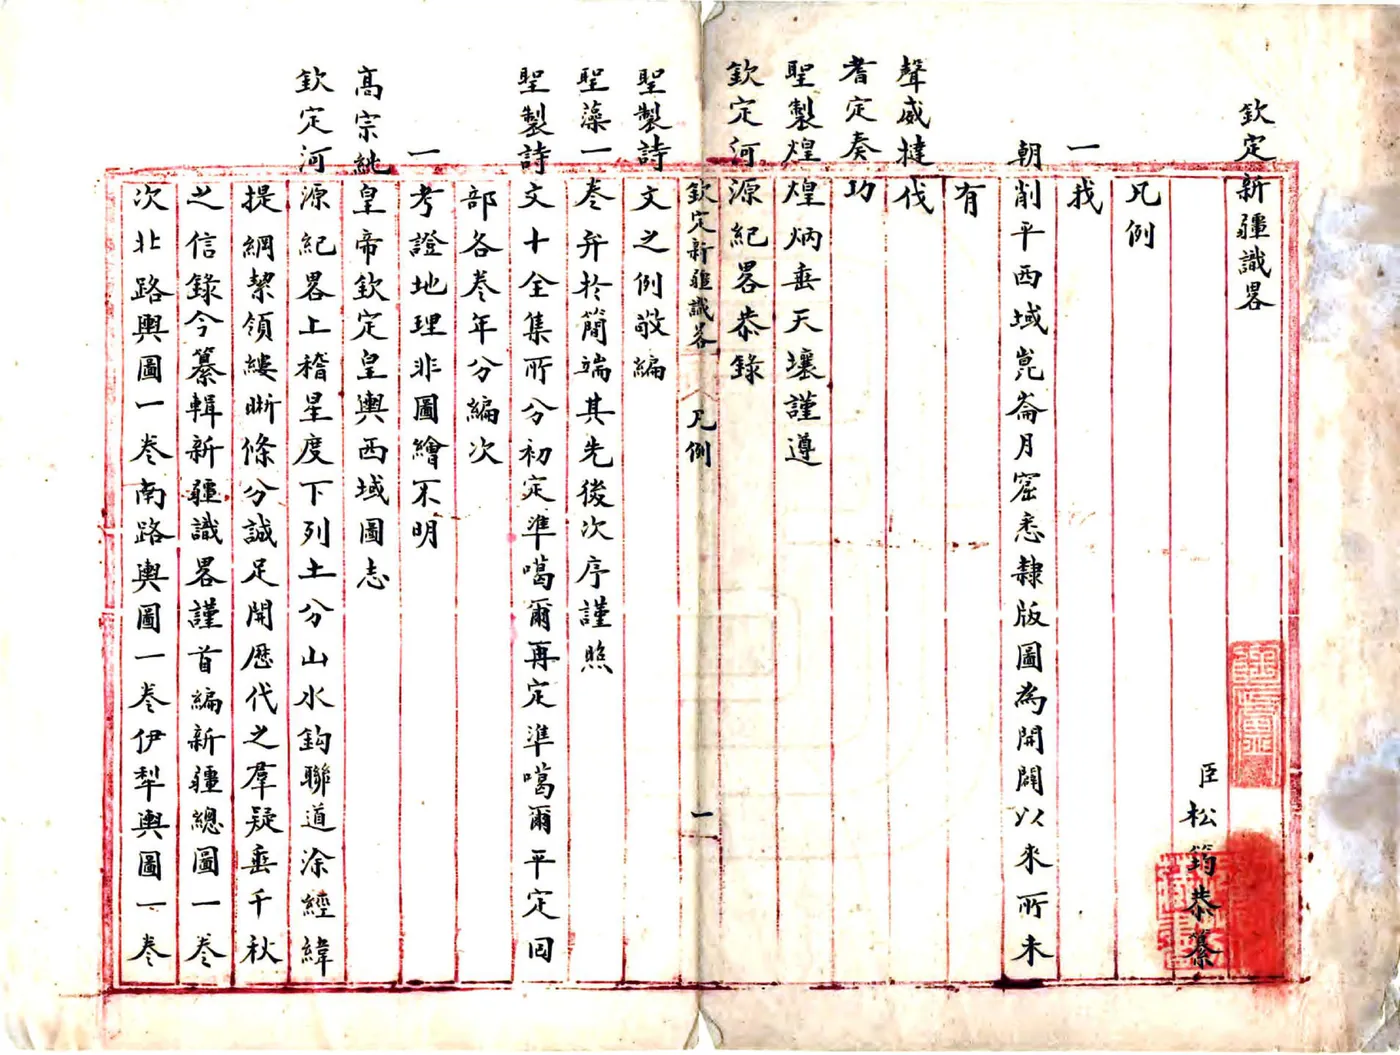 欽定新疆識畧
臣松筠恭纂
凡例
一我
朝削平西域崑崙月窟悉隸版圖為開闢以來所未
有
聲威撻伐
耆定奏功
聖製煌煌炳垂天壤謹遵
欽定河源紀畧恭錄
欽定新疆識畧 凡例 一
聖製詩文之例敬編
聖藻一卷弁於簡端其先後次序謹照
聖製詩文十全集所分初定準噶爾再定準噶爾平定回
部各卷年分編次
一考證地理非圖繪不明
高宗純皇帝欽定皇輿西域圖志
欽定河源紀畧上稽星度下列土分山水鈎聯道涂經緯
提綱挈領縷晰條分誠足開歷代之羣疑垂千秋
之信錄今纂輯新疆識畧謹首編新疆總圖一卷
次北路輿圖一卷南路輿圖一卷伊犁輿圖一卷